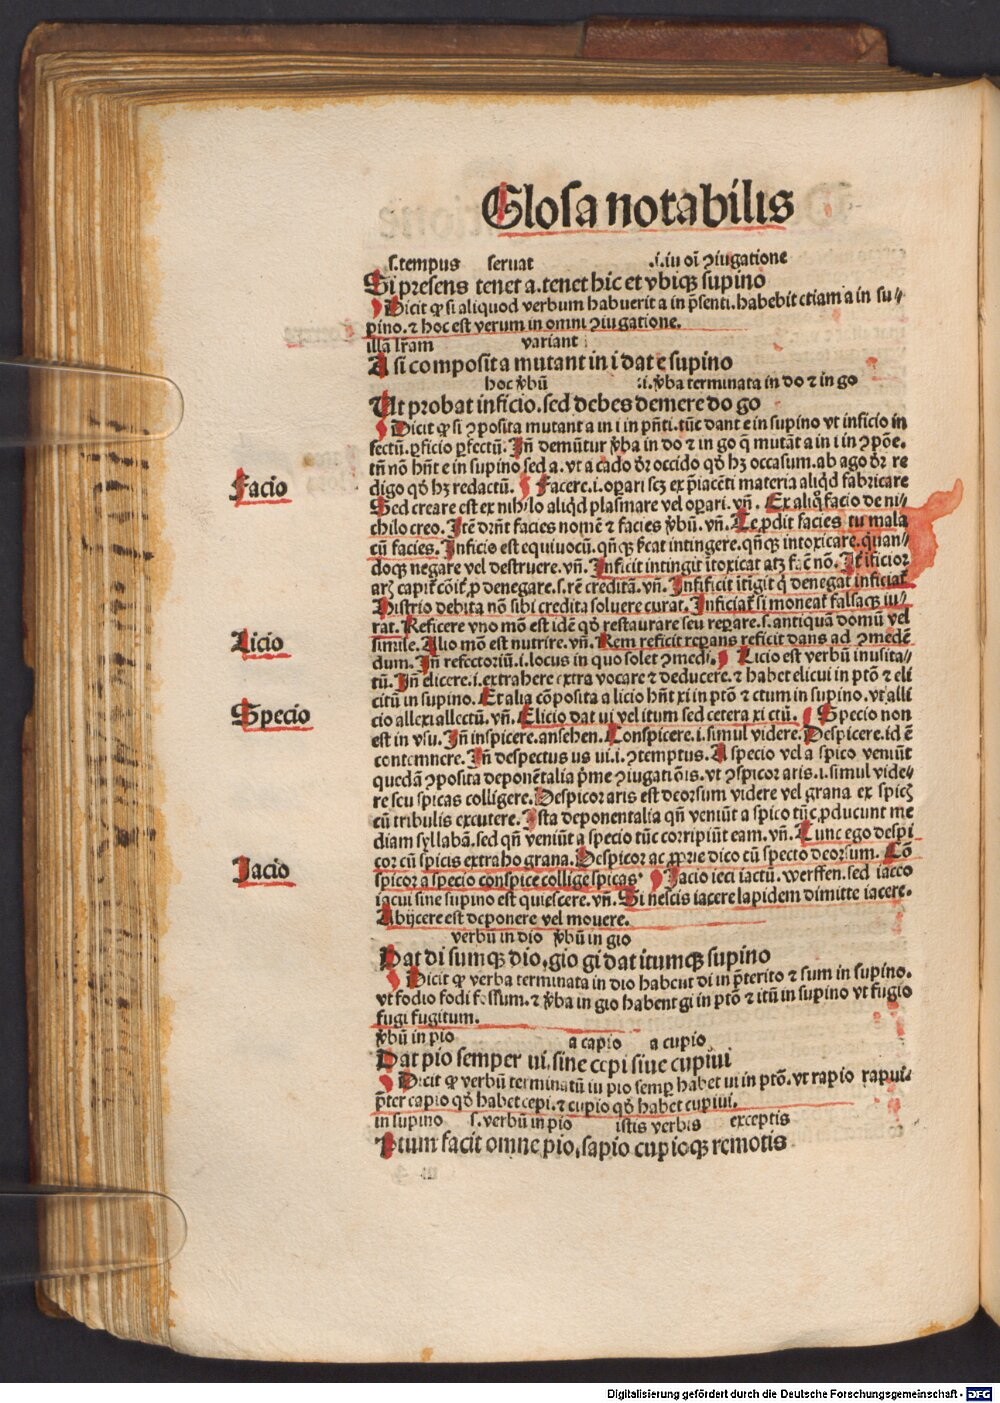 Glosa notabilis
s.tempus seruat .i.in oī ꝯiugatione
Si presens tenet a.tenet hic et vbiqꝫ supino
Dicit ꝙ si aliquod verbum habuerit a in p̄senti.habebit etiam a in su⸗
pino.⁊ hoc est verum in omni ꝯiugatione.
illā lr̄am variant
A si composita mutant in i dat e supino
hoc v̄bū .i.v̄ba terminata in do ⁊ in go
Ut probat inficio.sed debes demere do go
Dicit ꝙ si ꝯposita mutant a in i in pn̄ti.tūc dant e in supino vt inficio in
fectū.ꝑficio ꝑfectū.In̄ demūtur v̄ba in do ⁊ in go q̄ mutāt a in i in ꝯpōe.
tn̄ nō hn̄t e in supino sed a.vt a cado dr̄ occido qd̄ hꝫ occasum.ab ago dr̄ re
Facio
digo qd̄ hꝫ redactū. Facere.i.oꝑari scꝫ ex p̄iacēti materia aliqd fabricare
Sed creare est ex nihilo aliqd plasmare vel oꝑari.vn̄. Ex aliq̊ facio de ni⸗
chilo creo.Itē dr̄nt facies nomē ⁊ facies v̄bū.vn̄.Te ꝓdit facies tu mala
cū facies.Inficio est equiuocū.qn̄qꝫ s̄cat intingere.qn̄qꝫ intoxicare.quan⸗
doqꝫ negare vel destruere.vn̄.Inficit intingit ītoxicat atqꝫ fac̄ nō. It̄ īficior
aris capit̄ cōit̄ ꝓ denegare.s.rē creditā.vn̄. Infificit ītīgit q̄ denegat inficiat̄
Histrio debita nō sibi credita soluere curat.Inficiat̄ si moneat̄ falsaqꝫ iu⸗
rat.Reficere vno mō est idē qd̄ restaurare seu reꝑare.s.antiquā domū vel
Licio
simile.Alio mō est nutrire.vn̄.Rem reficit reꝑans reficit dans ad ꝯmedē
dum.In̄ refectoriū.i.locus in quo solet ꝯmedi. Licio est verbū inusita⸗
tū.In̄ elicere.i.extrahere extra vocare ⁊ deducere.⁊ habet elicui in ptō ⁊ eli
citū in supino.Et alia cōposita a licio hn̄t xi in ptō ⁊ ctum in supino.vt alli
Specio
cio allexi allectū.vn̄.Elicio dat ui vel itum sed cetera xi ctū. Specio non
est in vsu.In̄ inspicere.ansehen.Conspicere.i.simul videre.Despicere.id ē
contemnere.In̄ despectus us ui.i.ꝯtemptus.A specio vel a spico veniūt
quedā ꝯposita deponētalia p̄me ꝯiugatiōis.vt ꝯspicor aris.i.simul vide⸗
re seu spicas colligere.Despicor aris est deorsum videre vel grana ex spicꝭ
cū tribulis excutere.Ista deponentalia qn̄ veniūt a spico tūc ꝓducunt me
diam syllabā.sed qn̄ veniūt a specio tūc corripiūt eam.vn̄.Tunc ego despi
cor cū spicis extraho grana.Despicor ac ꝓprie dico cū specto deorsum. Cō
Jacio
spicor a specio conspice collige spicas. Jacio ieci iactū.werffen.sed iaceo
iacui sine supino est quiescere.vn̄.Si nescis iacere lapidem dimitte iacere.
Abijcere est deponere vel mouere.
verbū in dio v̄bū in gio
Dat di sumqꝫ dio,gio gi dat itumqꝫ supino
Dicit ꝙ verba terminata in dio habent di in p̄terito ⁊ sum in supino.
vt fodio fodi fossum.⁊ v̄ba in gio habent gi in ptō ⁊ itū in supino vt fugio
fugi fugitum.
v̄bū in pio a capio a cupio
Dat pio semper ui.sine cepi siue cupiui
Dicit ꝙ verbū terminatū in pio semꝑ habet ui in ptō.vt rapio rapui.
p̄ter capio qd̄ habet cepi.⁊ cupio qd̄ habet cupiui.
in supino s.verbū in pio istis verbis exceptis
Ptum facit omne pio,sapio cupioqꝫ remotis
Digitalisierung gefördert durch die Deutsche Forschungsgemeinschaft - DFG